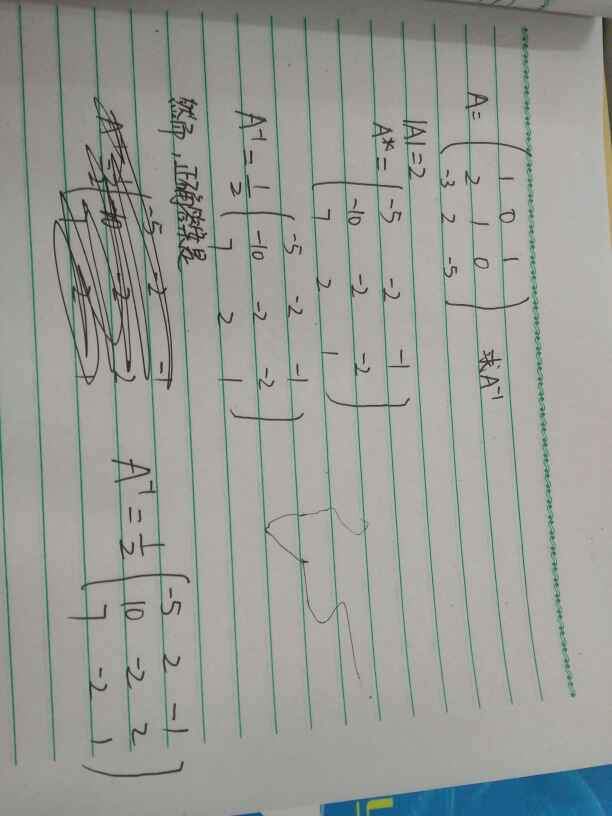 A= ( 1 0 1
2 1 0 求A⁻¹
-3 2 -5 )
|A|=2
A*= ( -5 -2 -1
-10 -2 -2
7 2 1 )
A⁻¹ = 1/2 ( -5 -2 -1
-10 -2 -2
7 2 1 )
然而，正确答案是
A⁻¹ = 1/2 ( -5 2 -1
10 -2 2
7 -2 1 )